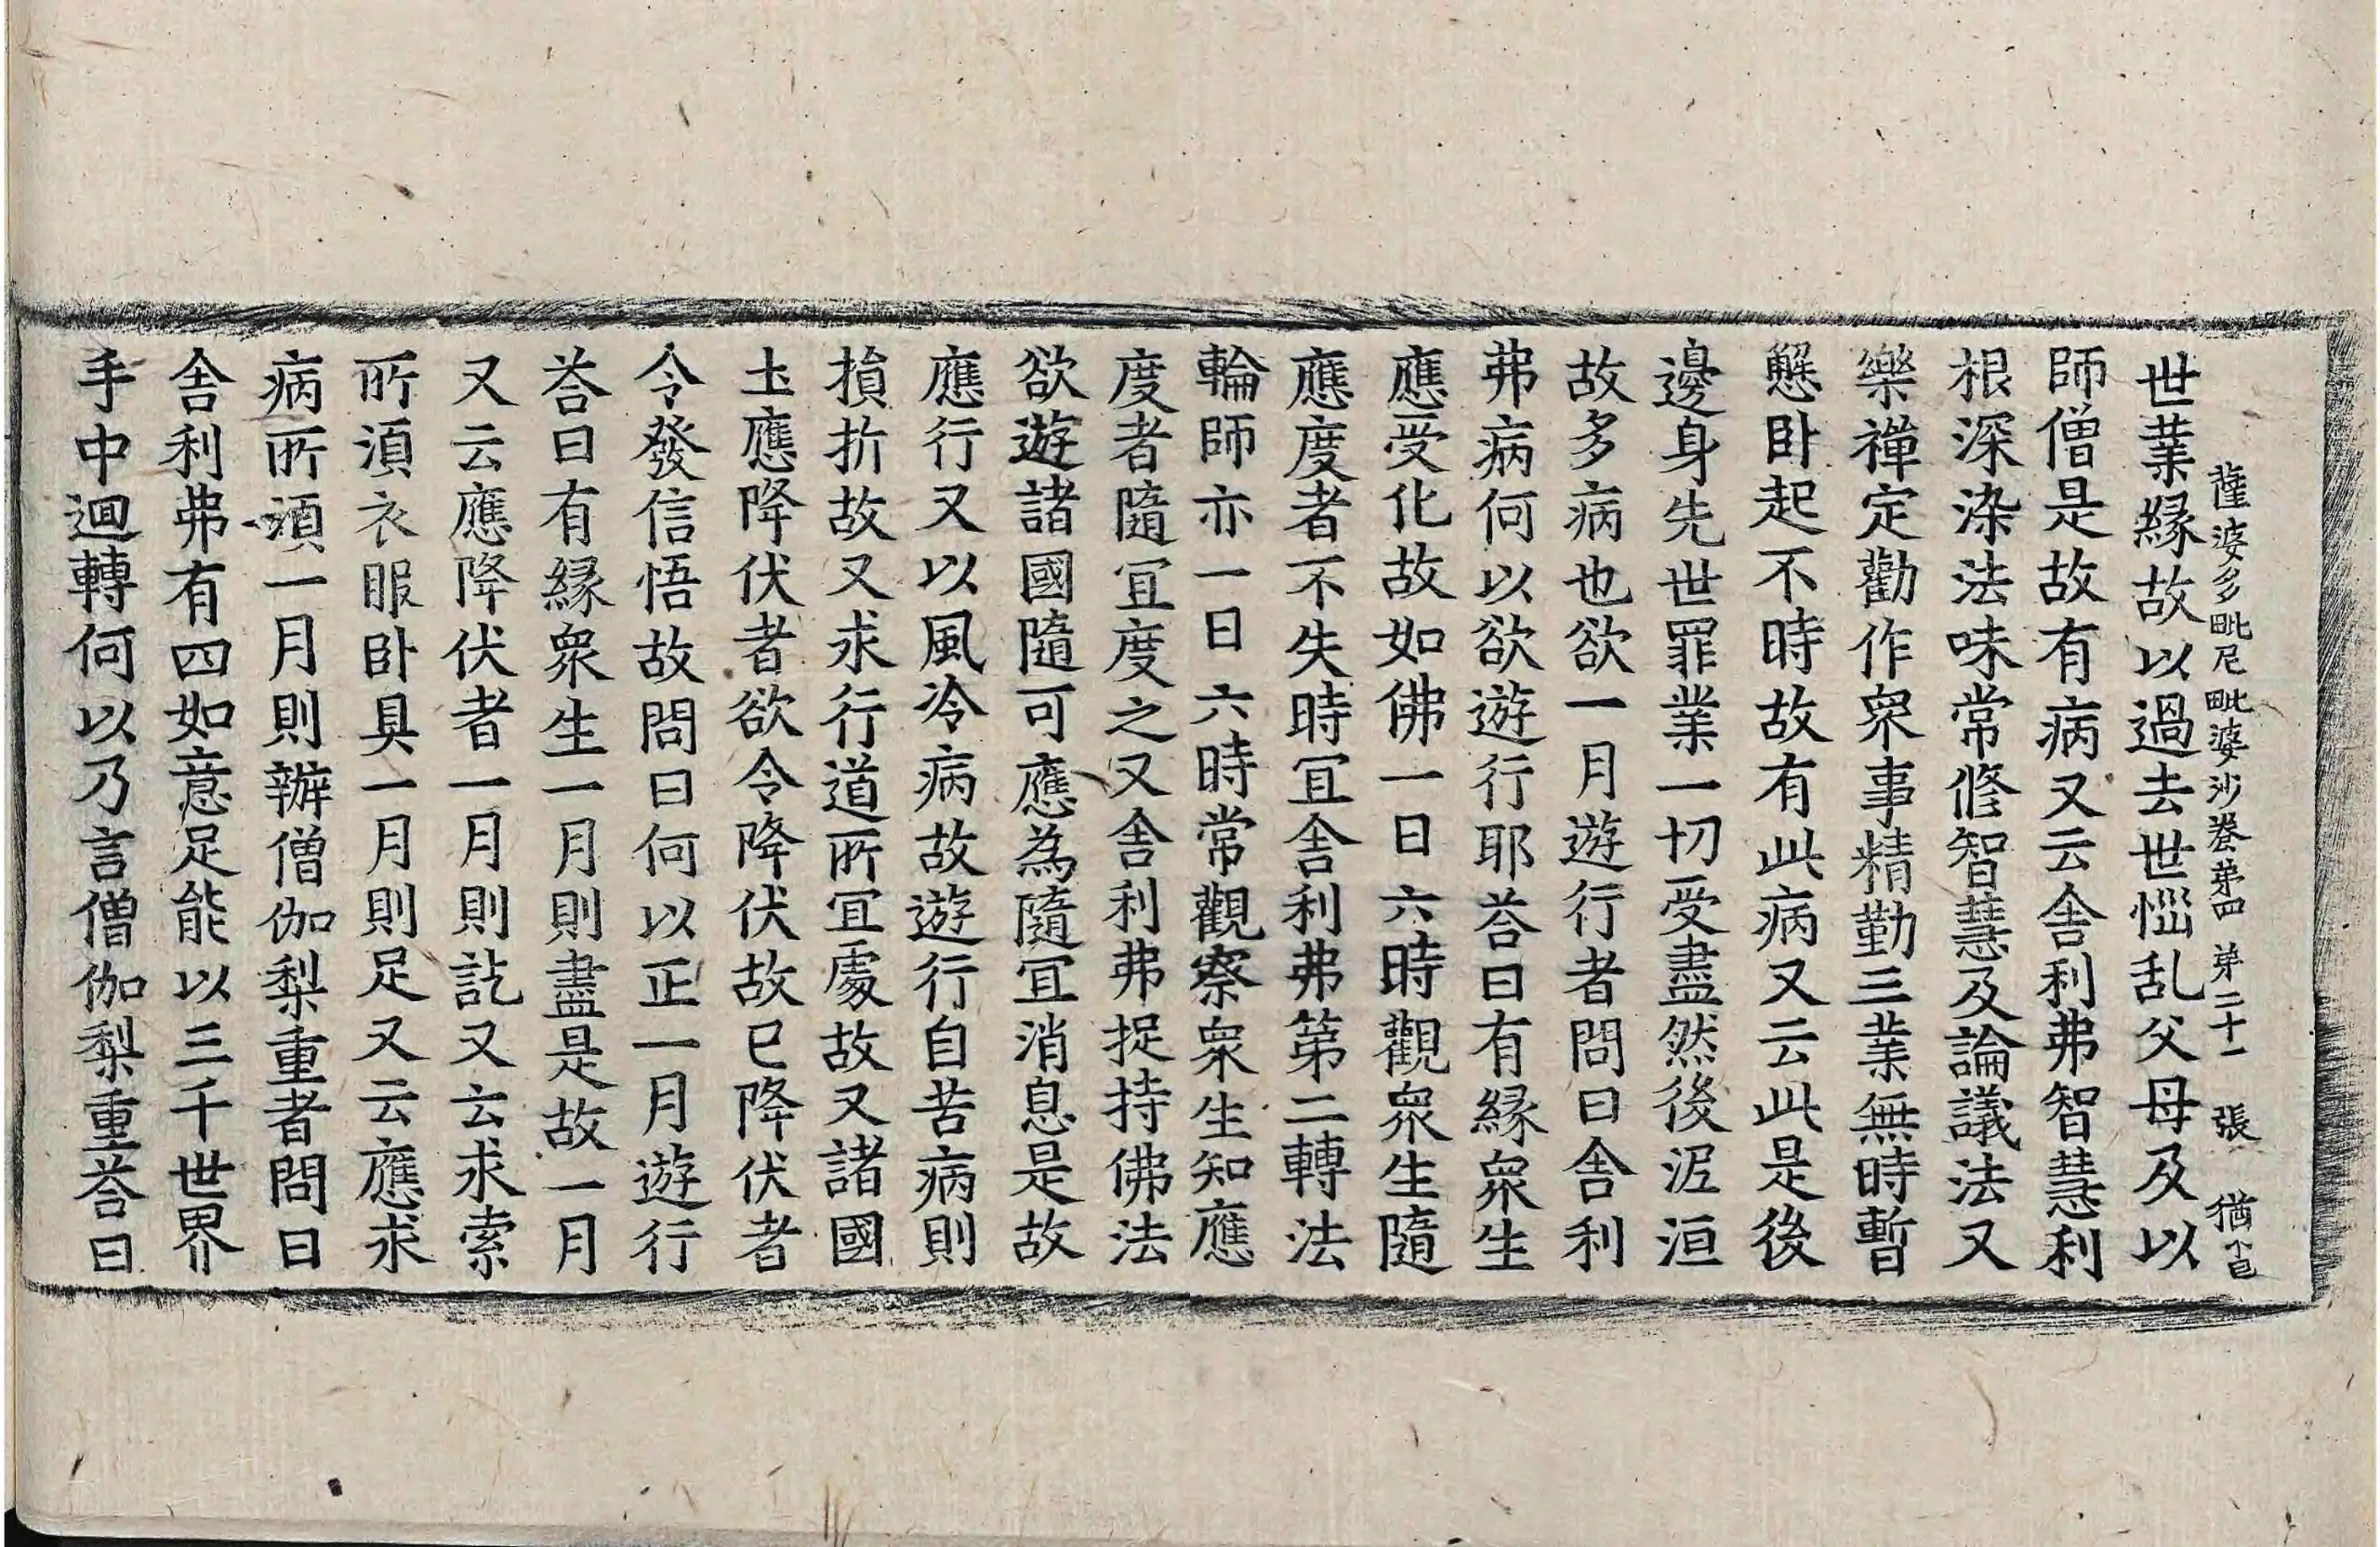 薩婆多毗尼毗婆沙卷第四 第二十一 張 猶
世業緣故以過去世惱乱父母及以
師僧是故有病又云舍利弗智慧利
根深染法味常修智慧及論議法又
樂禪定勸作衆事精勤三業無時暫
懈卧起不時故有此病又云此是後
邊身先世罪業一切受盡然後泥洹
故多病也欲一月遊行者問曰舍利
弗病何以欲遊行耶荅曰有緣衆生
應受化故如佛一日六時觀衆生隨
應度者不失時宜舍利弗第二轉法
輪師亦一日六時常觀察衆生知應
度者隨宜度之又舍利弗捉持佛法
欲遊諸國隨可應為隨宜消息是故
應行又以風冷病故遊行自苦病則
損折故又求行道所宜處故又諸國
土應降伏者欲令降伏故已降伏者
令發信悟故問曰何以正一月遊行
荅曰有緣衆生一月則盡是故一月
又云應降伏者一月則訖又云求索
所湏衣服卧具一月則足又云應求
病所湏一月則辦僧伽梨重者問曰
舍利弗有四如意足能以三千世界
手中迴轉何以乃言僧伽梨重荅曰